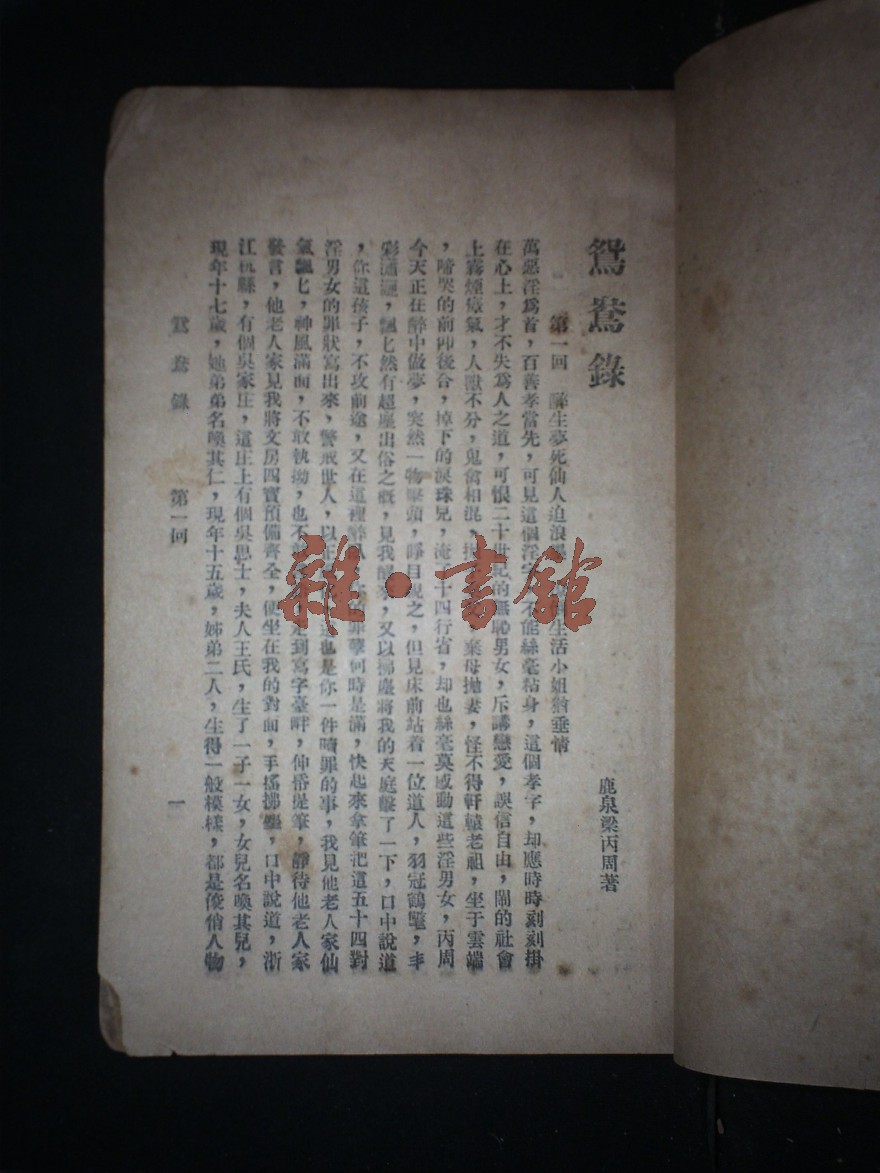 鴛鴦錄
鹿泉梁丙周著
第一回 醉生夢死仙人迫浪 生活小姐猶垂情
萬惡淫為首，百善孝當先，可見這個淫字，不能絲毫粘身，這個孝字，却應時時刻刻掛
在心上，才不失為人之道，可恨二十世紀的無恥男女，斥講戀愛，誤信自由，鬧的社會
上霧煙瘴氣，人獸不分，鬼畜相混，棄母拋妻，怪不得軒轅老祖，坐于雲端
，啼哭的前仰後合，掉下的淚珠兒，淹了十四行省，却也絲毫莫感動這些淫男女，丙周
今天正在醉中做夢，突然一物擊頭，睜目視之，但見床前站着一位道人，羽冠鶴氅，丰
彩瀟灑，飄匕然有超塵出俗之概，見我醒來，又以拂塵將我的天庭擊了一下，口中說道
，你這孩子，不攻前途，又在這裡醉臥，你的罪孽何時是滿，快起來拿筆把這五十四對
淫男女的罪狀寫出來，警戒世人，以正 也是你一件贖罪的事，我見他老人家仙
氣飄匕，神風滿面，不敢執拗，也不 走到寫字臺畔，伸帋提筆，靜待他老人家
發言，他老人家見我將文房四寶預備齊全，便坐在我的對面，手搖拂塵，口中說道，浙
江杭縣，有個吳家庄，這庄上有個吳思士，夫人王氏，生了一子一女，女兒名喚其兒，
現年十七歲，她弟弟名喚其仁，現年十五歲，姊弟二人，生得一般模樣，都是俊俏人物
鴛鴦錄 第一回 一
雜·書館